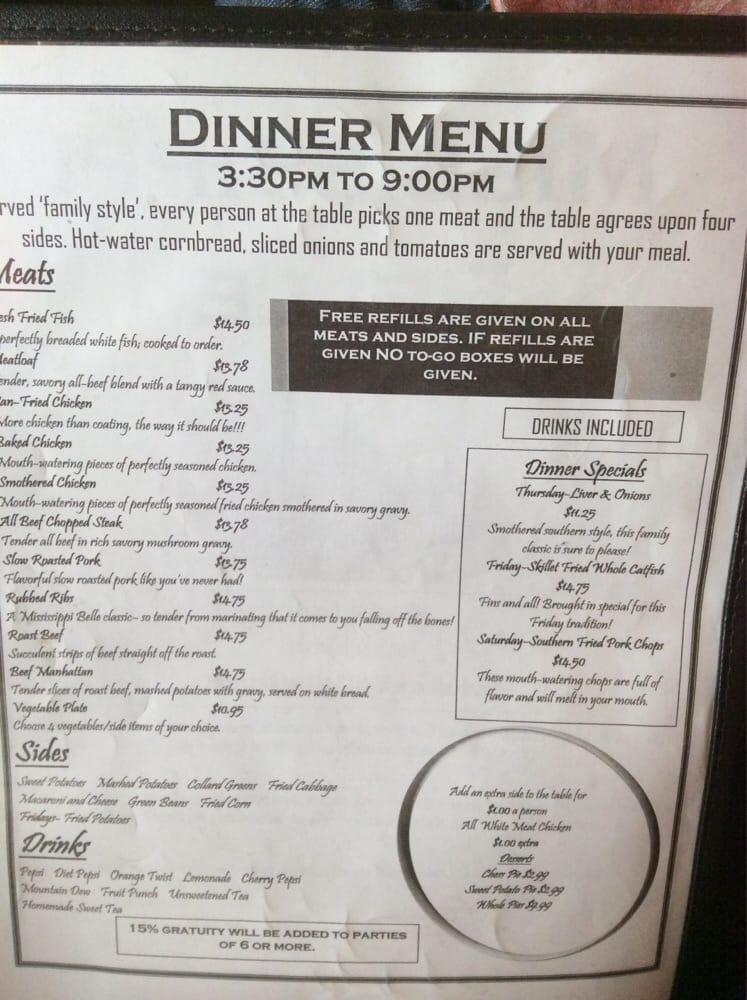 DINNER MENU
3:30PM TO 9:00PM
rved 'family style', every person at the table picks one meat and the table agrees upon four
sides. Hot-water cornbread, sliced onions and tomatoes are served with your meal.
Meats
esh Fried Fish $14.50
perfectly breaded white fish; cooked to order.
Meatloaf $13.78
ender, savory all-beef blend with a tangy red sauce.
an-Fried Chicken $13.25
More chicken than coating, the way it should be!!!
Baked Chicken $13.25
Mouth-watering pieces of perfectly seasoned chicken.
Smothered Chicken $13.25
Mouth-watering pieces of perfectly seasoned fried chicken smothered in savory gravy.
All Beef Chopped Steak $13.78
Tender all beef in rich savory mushroom gravy.
Slow Roasted Pork $13.75
Flavorful slow roasted pork like you've never had!
Rubbed Ribs $14.75
A Mississippi Belle classic- so tender from marinating that it comes to you falling off the bones!
Roast Beef $14.75
Succulent strips of beef straight off the roast.
Beef Manhattan $14.75
Tender slices of roast beef, mashed potatoes with gravy, served on white bread.
Vegetable Plate $10.95
Choose 4 vegetables/side items of your choice.
FREE REFILLS ARE GIVEN ON ALL
MEATS AND SIDES. IF REFILLS ARE
GIVEN NO TO-GO BOXES WILL BE
GIVEN.
DRINKS INCLUDED
Dinner Specials
Thursday-Liver & Onions
$11.25
Smothered southern style, this family
classic is sure to please!
Friday-Skillet Fried Whole Catfish
$14.75
Fins and all! Brought in special for this
Friday tradition!
Saturday-Southern Fried Pork Chops
$14.50
These mouth-watering chops are full of
flavor and will melt in your mouth.
Sides
Sweet Potatoes Mashed Potatoes Collard Greens Fried Cabbage
Macaroni and Cheese Green Beans Fried Corn
Fridays- Fried Potatoes
Drinks
Pepsi Diet Pepsi Orange Twist Lemonade Cherry Pepsi
Mountain Dew Fruit Punch Unsweetened Tea
Homemade Sweet Tea
Add an extra side to the table for
$1.00 a person
All White Meat Chicken
$1.00 extra
Desserts
Chess Pie $2.99
Sweet Potato Pie $2.99
Whole Pies $9.99
15% GRATUITY WILL BE ADDED TO PARTIES
OF 6 OR MORE.